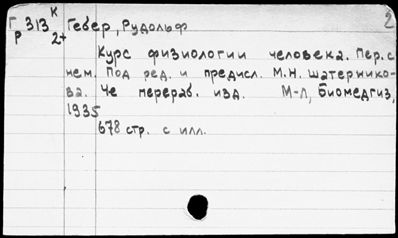 Г 313 К Гебер, Рудольф 2
Р 2+
Курс физиологии человека. Пер. с
нем. Под ред. и предисл. М.Н. Шатернико-
ва. 4е перераб. изд. М-Л, Биомедгиз,
1935
678 стр. с илл.